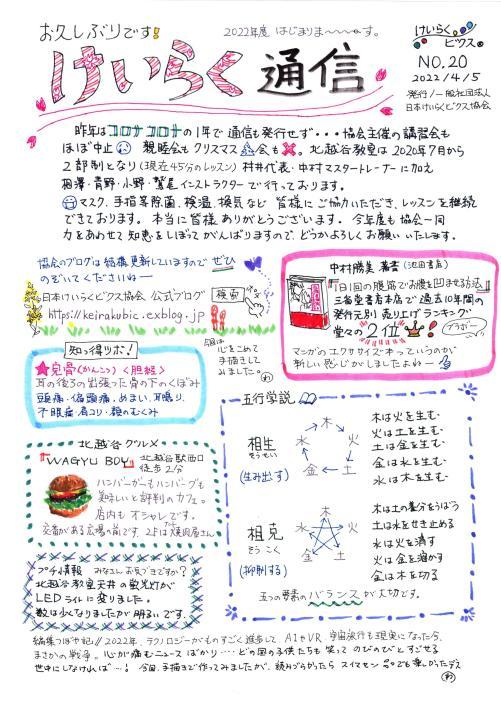 お久しぶりです!
2022年度 はじまりま〜〜す。
けいらく通信
けいらくビクス
NO.20
2022/4/5
発行/一般社団法人
日本けいらくビクス協会
昨年はコロナコロナの1年で通信も発行せず・・・協会主催の講習会も
ほぼ中止 親睦会もクリスマス会も×。北越谷教室は2020年7月から
2部制となり(現在45分のレッスン)村井代表・中村マスタートレーナーに加え
相澤・青野・小野・鷲尾インストラクターで行っております。
マスク、手指等除菌、検温、換気など 皆様にご協力いただき、レッスンを継続
できております。本当に皆様ありがとうございます。今年度も協会一同
力をあわせて知恵をしぼってがんばりますので、どうかよろしくお願いいたします。
協会のブログは結構更新していますので ぜひ
のぞいてくださいねー
日本けいらくビクス協会 公式ブログ 検索
https://keirakubic.exblog.jp
中村勝美 著書(池田書店)
『1日1回の腹踏でお腹を凹ませる方法』
三省堂書店本店で過去10年間の
発行元別売り上げランキング
堂々の2位
ブラボー
マンガのエクササイズ本っていうのが
新しい感じがしましたよねー
今回は
心をこめて
手描きして
みました。
知っ得ツボ!
★完骨(かんこつ)<胆経>
耳の後ろの出張った骨の下のくぼみ
頭痛・偏頭痛・めまい、耳鳴り、
不眠症、肩コリ・顔のむくみ
五行学説
相生
そうせい
(生み出す)
木
火
土
金
水
木は火を生む・
火は土を生む・
土は金を生む・
金は水を生む・
水は木を生む・
相克
そうこく
(抑制する)
木
火
土
金
水
木は土の養分をうばう
土は水をせき止める
水は火を消す
火は金を溶かす
金は木を切る
五つの要素のバランスが大切です。
北越谷グルメ
『WAGYU BOY』
北越谷駅西口
徒歩2分
ハンバーガーもハンバーグも
美味しいと評判のカフェ。
店内もオシャレです。
交番がある広場の前です。2Fは焼肉屋さん
プチ情報 みなさんお気づきですか?
北越谷教室天井の蛍光灯が
LEDライトに変りました。
数は少くなりましたが明るいです。
編集つぼやき// 2022年、テクノロジーがものすごく進歩して、AIやVR、宇宙旅行も現実になった今、
まさかの戦争。心が痛むニュースばかり・・・・どの国の子供たちも笑ってのびのびとすごせる
世中にしなければ・・・! 今回、手描きで作ってみましたが、読みづらかったらスイマセン でも楽しかったデス